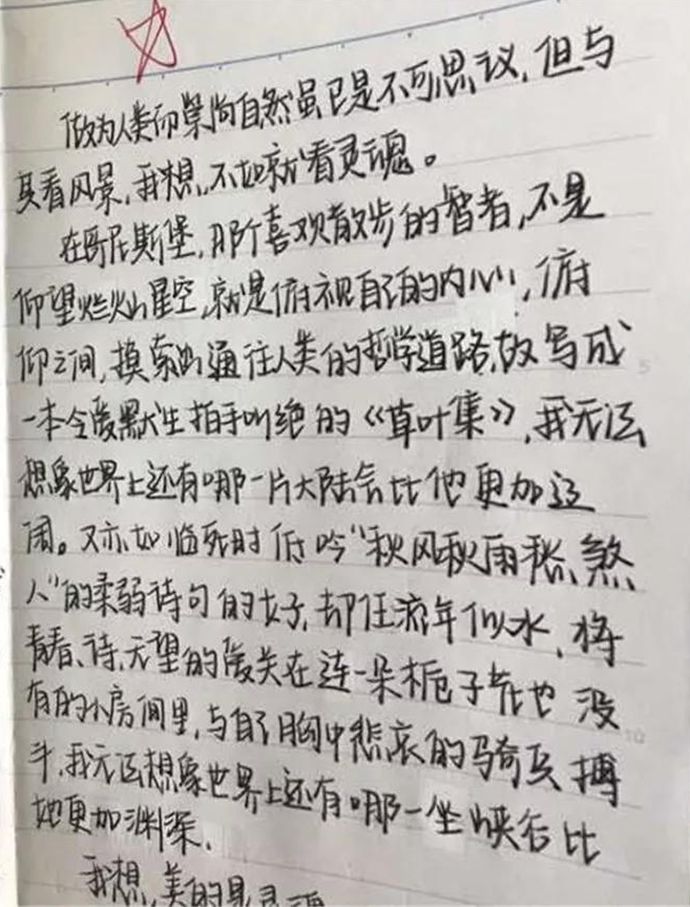 做为人类而崇尚自然虽已是不可思议,但与
其看风景,我想,不如就看灵魂。
在哥尼斯堡,那个喜欢散步的智者,不是
仰望烂灿星空,就是俯视自己的内心,俯
仰之间,摸索出通往人类的哲学道路,故写成
一本令爱默生拍手叫绝的《草叶集》,我无法
想象世界上还有哪一片大陆会比他更加辽
阔。又亦如临死时低吟“秋风秋雨愁煞
人”的柔弱诗句的女子,却任流年似水,将
青春、诗、无望的爱关在连一朵栀子花也没
有的小房间里,与自己胸中悲哀的骑兵搏
斗,我无法想象世界上还有哪一坐峡谷比
她更加渊深.
我想,美的是灵魂